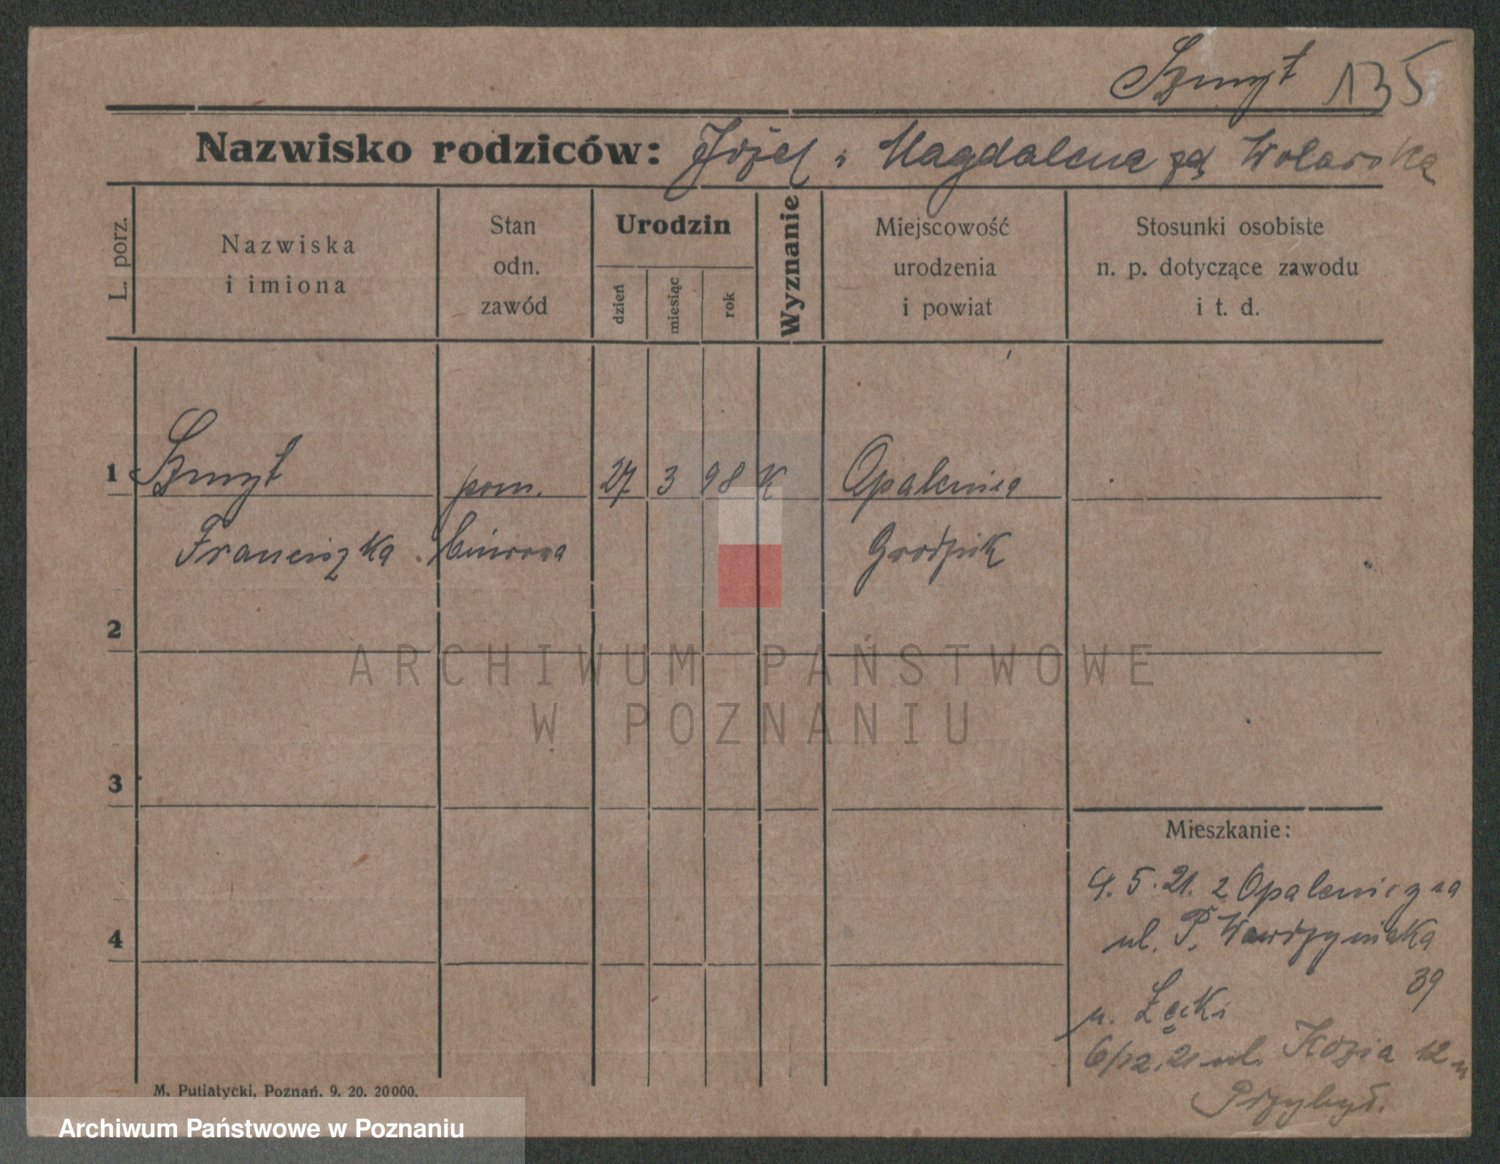 Szmyt 135
Nazwisko rodziców: Józef i Magdalena zd Wolarska
L. porz.
Nazwiska
i imiona
Stan
odn.
zawód
Urodzin
dzień
miesiąc
rok
Wyznanie
Miejscowość
urodzenia
i powiat
Stosunki osobiste
n. p. dotyczące zawodu
i t. d.
1 Szmyt pom. 27 3 98 K Opalenica
Franciszka biurowa Grodzisk
2
ARCHIWUM PAŃSTWOWE
W POZNANIU
3
Mieszkanie:
4.5.21. z Opalenicy na
4
ul. P. Wawrzyniaka
39
u. Łącki
6/12.21 ul. Kozia 12 u
Przybył.
M. Putiatycki, Poznań, 9. 20. 20000.
Archiwum Państwowe w Poznaniu